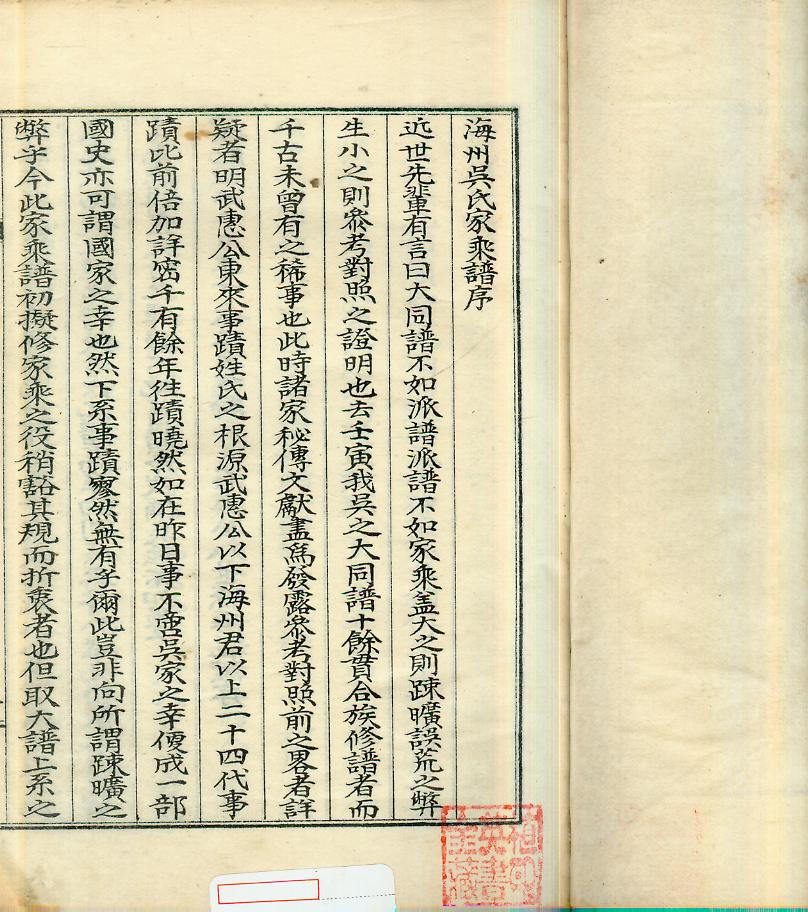 海州吳氏家乘譜序
近世先輩有言曰大同譜不如派譜派譜不如家乘盖大之則踈曠誤荒之弊
生小之則叅考對照之證明也去壬寅我吳之大同譜十餘貫合族修譜者而
千古未曾有之稀事也此時諸家秘傳文獻盡爲發露叅考對照前之畧者詳
疑者明武惠公東來事蹟姓氏之根源武惠公以下海州君以上二十四代事
蹟比前倍加詳密千有餘年徃蹟曉然如在昨日事不啻吳家之幸便成一部
國史亦可謂國家之幸也然下系事蹟寥然無有乎爾此豈非向所謂踈曠之
弊乎今此家乘譜初擬修家乘之役稍豁其規而折衷者也但取大譜上系之